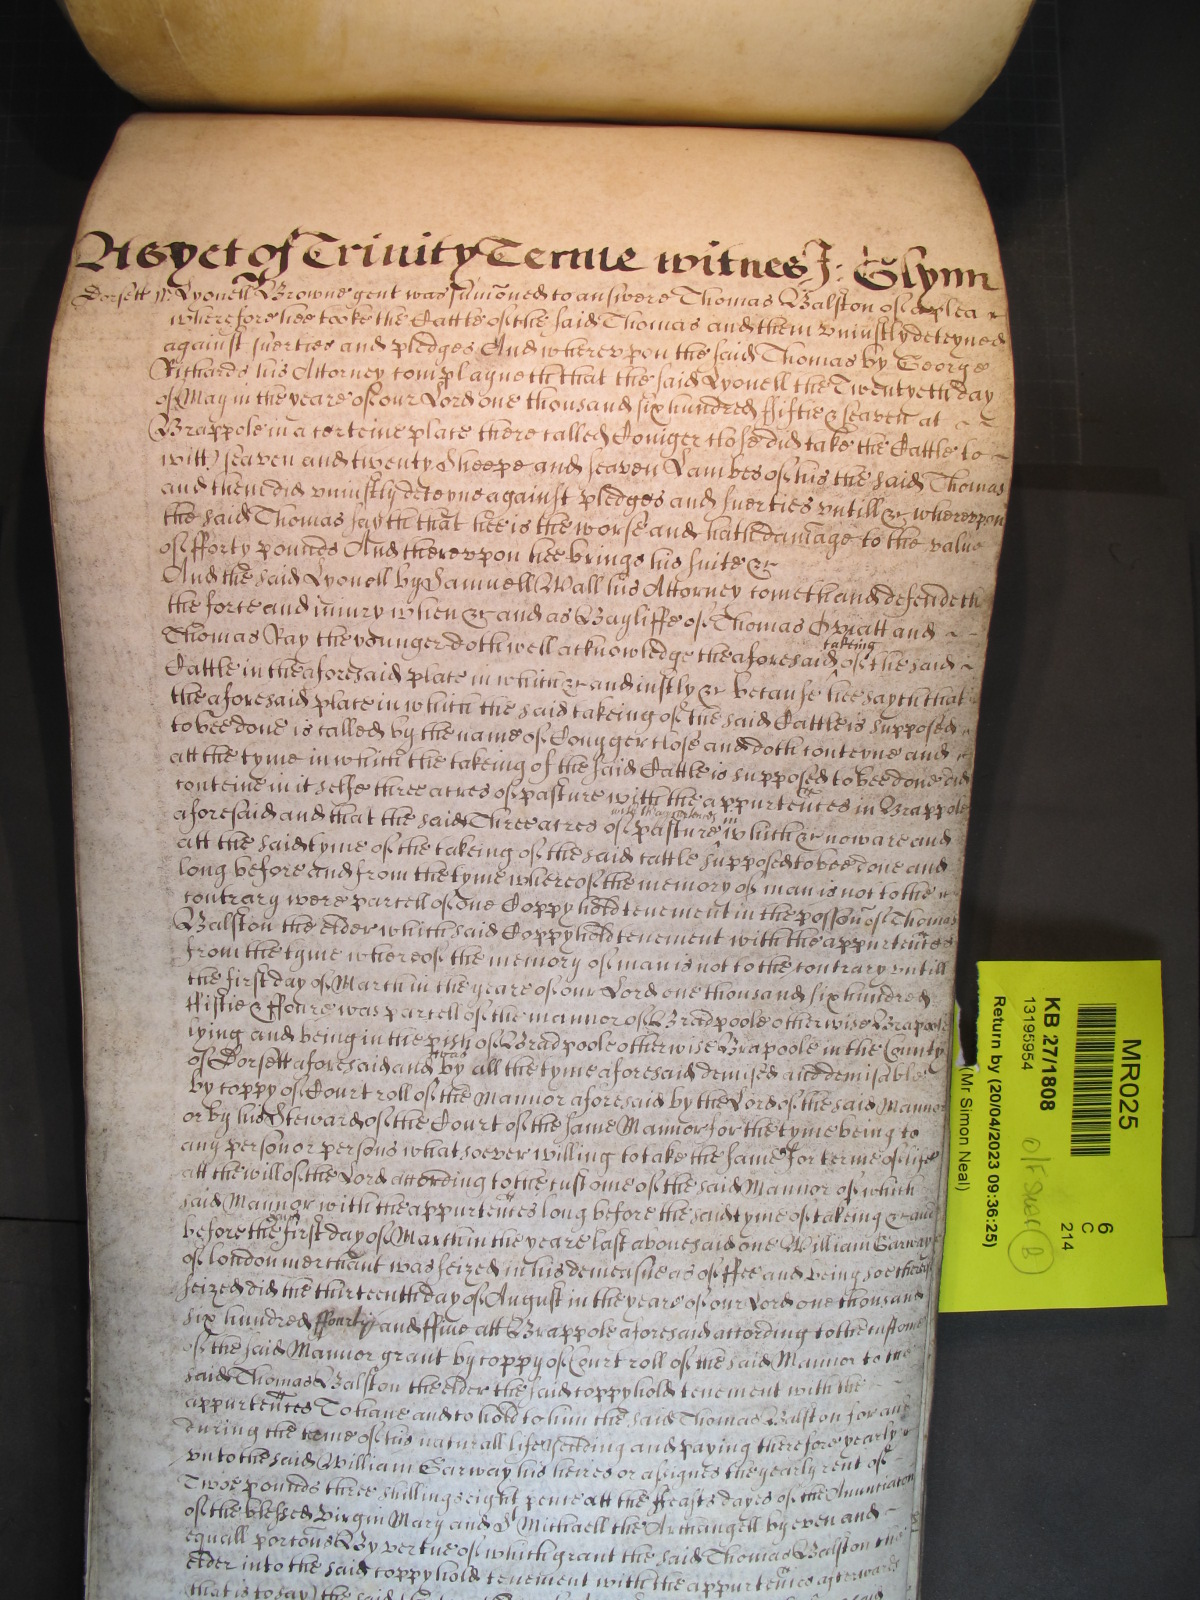 As yet of Trinity Terme witnes J: Glynn
Dorsett ss Lyonell Browne gent was sumoned to answere Thomas Balston of a plea
wherefore hee tooke the Cattle of the said Thomas and them uniustly deteyned
against suerties and pledges And whereupon the said Thomas by George
Richards his Attorney complayneth that the said Lyonell the Twentyeth day
of May in the yeare of our Lord one thousand six hundred fiftie & seaven at
Brappole in a certeine place there called Coniger close did take the Cattle to
witt) seaven and twenty Sheepe and seaven Lambes of his the said Thomas
and them did uniustly deteyne against pledges and suerties untill &c whereupon
the said Thomas sayth that hee is the worse and hath damage to the value
of fforty pounds And thereupon hee brings his suite &c
And the said Lyonell by Samuell Wall his Attorney cometh and defendeth
the force and iniury when &c and as Bayliffe of Thomas and
Thomas Ray the younger doth well acknowledge the aforesaid takeing of the said
Cattle in the aforesaid place in which &c and iustly &c because hee sayth that
the aforesaid place in which the said takeing of the said Cattle is supposed
to bee done is called by the name of Conygger close and doth conteyne and
att the tyme in which the takeing of the said Cattle is supposed to bee done did
conteine in it selfe three acres of pasture with the appurtences in Brappole
aforesaid and that the said Three acres of pasture with thappurtences in which &c now are and
att the said tyme of the takeing of the said cattle supposed to bee done and
long before and from the tyme whereof the memory of man is not to the
contrary were parcell of one Coppyhold tenement in the possion of Thomas
Balston the elder which said Coppyhold tenement with the appurtences
from the tyme whereof the memory of man is not to the contrary untill
the first day of March in the yeare of our Lord one thousand six hundred
fiftie & ffoure was parcell of the mannor of Bradpoole otherwise Brapoole
lying and being in the pish of Bradpoole otherwise Brapoole in the County
of Dorsett aforesaid and was by all the tyme aforesaid demised and demisable
by coppy of Court roll of the Mannor aforesaid by the Lord of the said Mannor
or by his Steward of the Court of the same Mannor for the tyme being to
any person or persons whatsoever willing to take the same for terme of life
att the will of the Lord according to the custome of the said Mannor of which
said Mannor with the appurtences long before the said tyme of takeing &c and
before the said first day of March in the yeare last abovesaid one William Garway
of London merchant was seized in his demeasne as of ffee and being soe thereof
seized did the thirteenth day of August in the yeare of our Lord one thousand
six hundred fforty and ffive att Brappole aforesaid according to the custome
of the said Mannor grant by coppy of Court roll of the said Mannor to the
said Thomas Balston the elder the said coppyhold tenement with the
appurtences To have and to hold to him the said Thomas Balston for and
during the terme of his naturall life yeilding and paying therefore yearly
unto the said William Garway his heires or assignes the yearly rent of
Twoe pounds three shillings eight pence att the ffeasts dayes of the Anuntiacon
of the blessed Virgin Mary and St Michaell the Archangell by even and
equall portons By vertue of which grant the said Thomas Balston the
elder into the said coppyhold tenement with the appurtences afterwards
(that is to say) the said
MR025
6
C
214
KB 27/1808
13195954
Return by (20/04/2023 09:36:25)
(Mr Simon Neal)